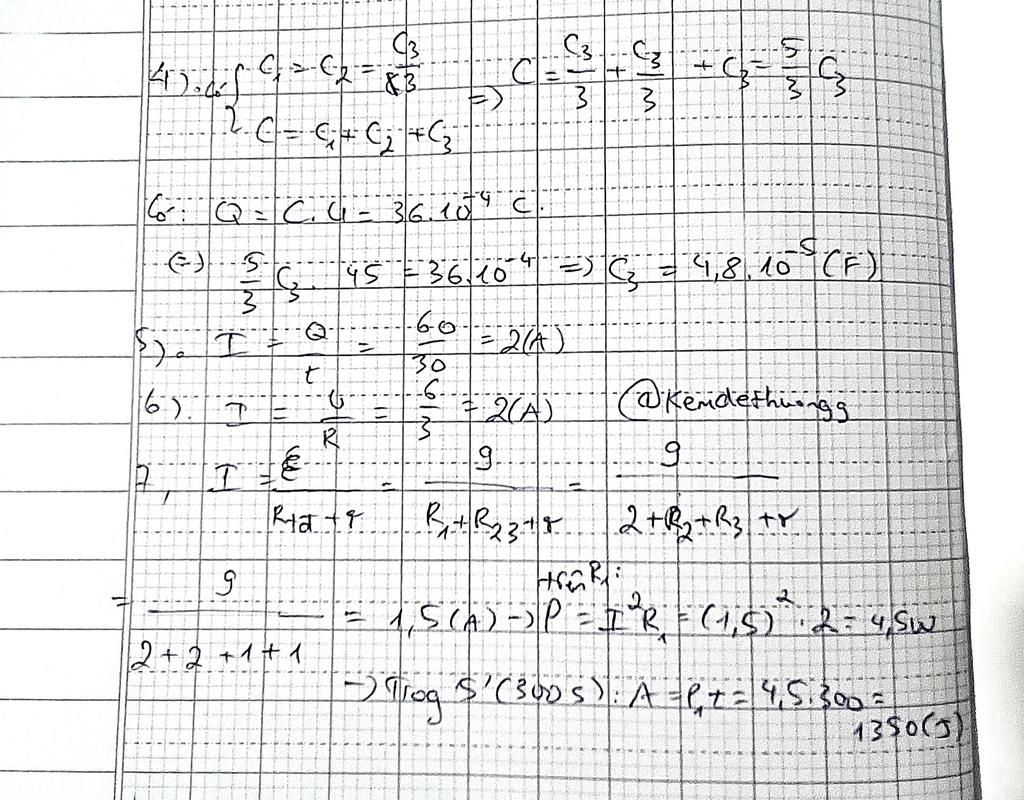 4). có { C₁ = C₂ = C₃/3 => C = C₃/3 + C₃/3 + C₃ = 5/3 C₃
C = C₁ + C₂ + C₃
Có: Q = C.U = 36.10⁻⁴ C.
(=) 5/3 C₃. 45 = 36.10⁻⁴ => C₃ = 4,8.10⁻⁵ (F)
5). I = Q/t = 60/30 = 2(A)
6). I = U/R = 6/3 = 2(A) @Kemdethuongg
7, I = ξ/(Rtđ + r) = 9/(R₁ + R₂₃ + r) = 9/(2 + R₂ + R₃ + r)
trên R₁:
= 9/(2 + 2 + 1 + 1) = 1,5 (A) -> P = I²R₁ = (1,5)². 2 = 4,5W
-> Trog 5' (300s): A = P₁t = 4,5.300 =
1350(J)